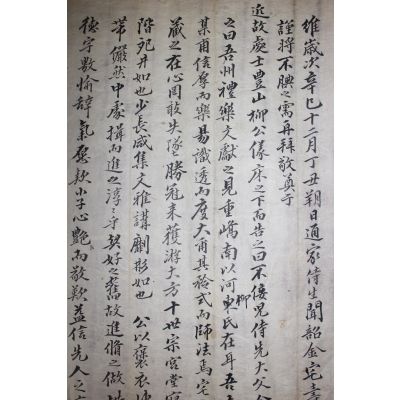 維歲次辛巳十二月丁丑朔日通家侍生聞韶金宅
謹將不腆之需再拜敬奠于
近故處士豊山柳公儀床之下而告之曰不佞兒侍先大父
之曰吾州禮樂文獻之見重嶠南以河東柳氏在耳吾
某甫信厚而樂易識透而度大甫其矜式而師法焉宅
藏之在心罔敢失墜勝冠來獲游大方十世宗宮堂
階戺井如也少長咸集文雅講劘彬如也 公以褒衣
帶儼然中處揖而進之淳淳乎契好之舊故進脩之做
德宇敷愉辭氣懇款小子心艶而敬歎益信先人之